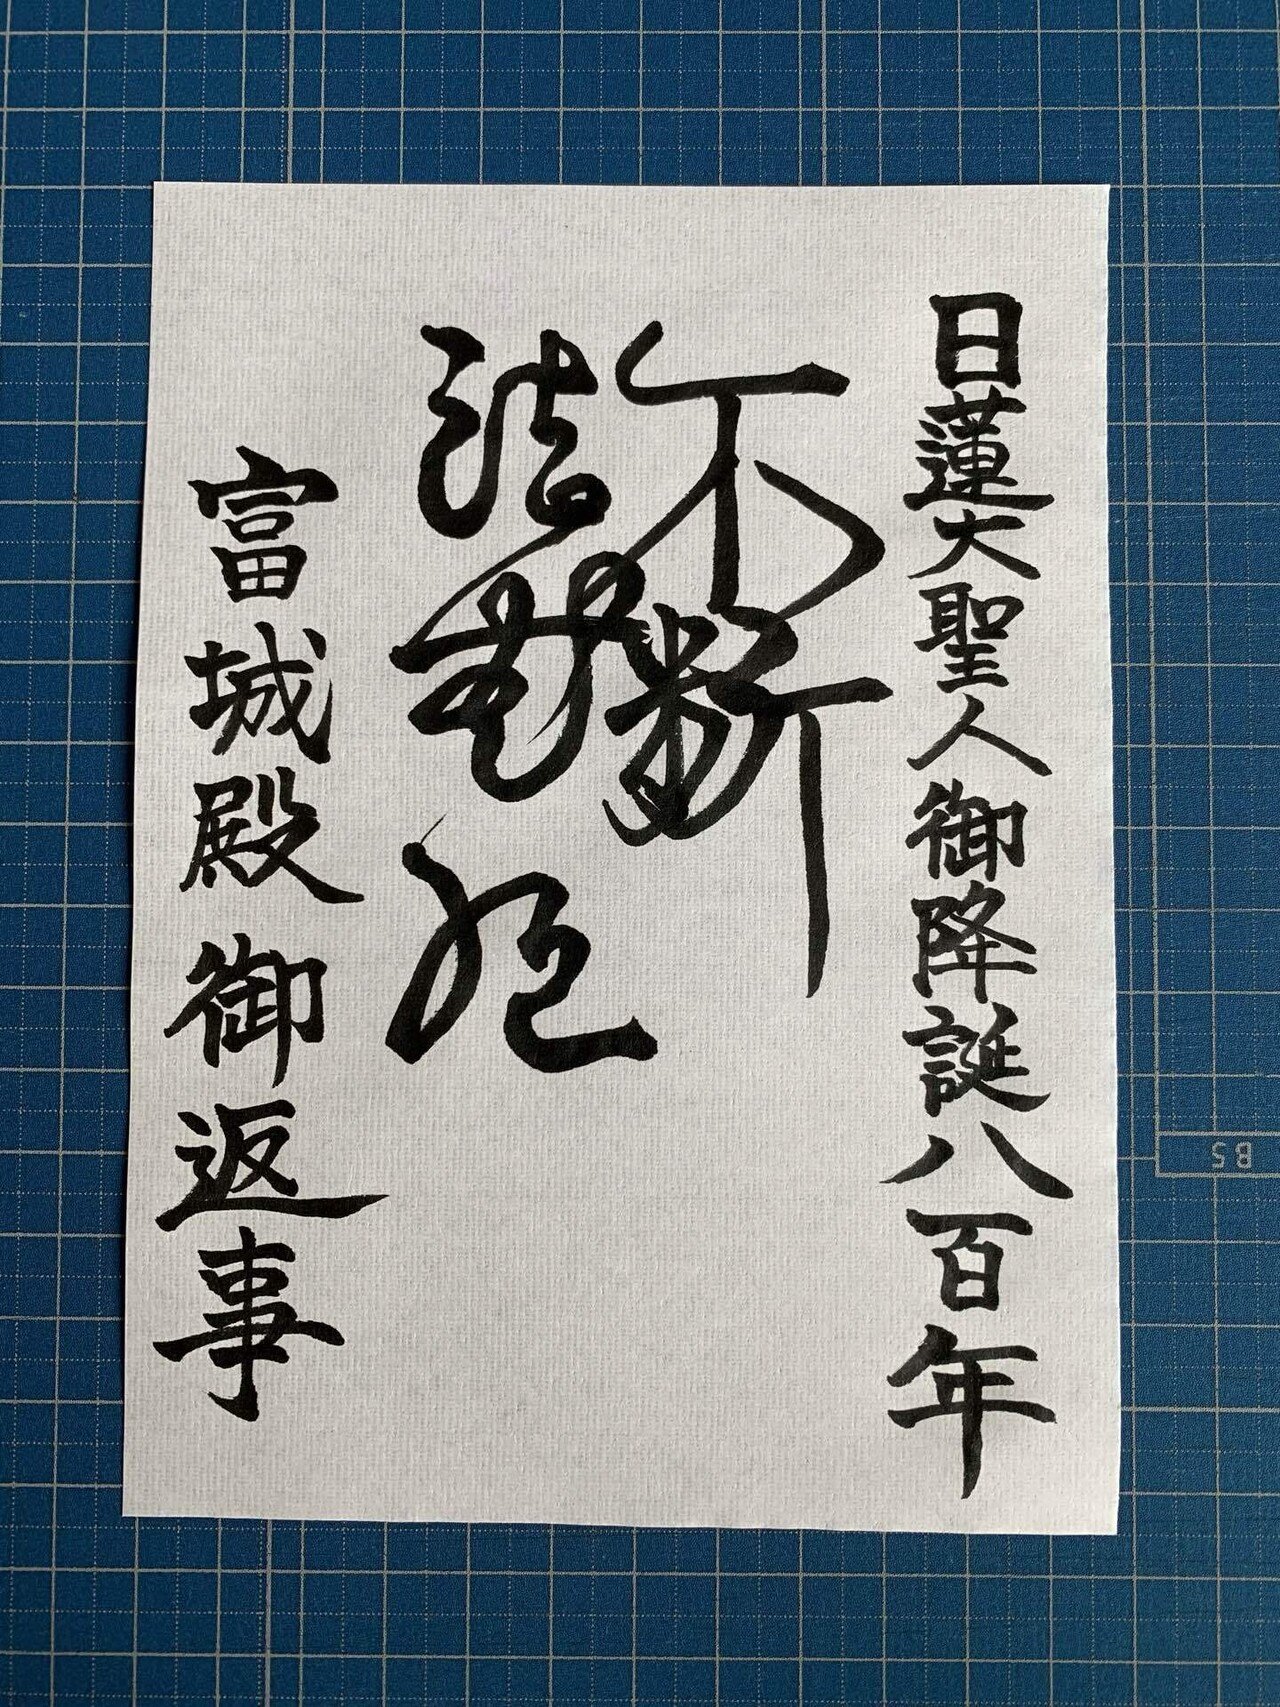 日蓮大聖人御降誕八百年
不断
法華経
富城殿御返事
B5